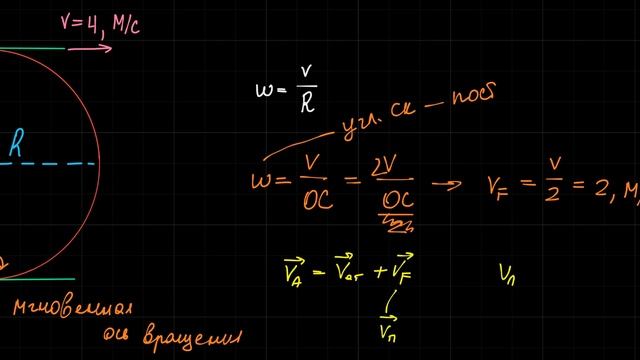 v = 4, м/с
ω = v/R
R
угл. ск — пост
ω = v/OC = 2v/OC → v_F = v/2 = 2, м,
v_A = v_от + v_F
v_п
v_п
мгновенная
ось вращения